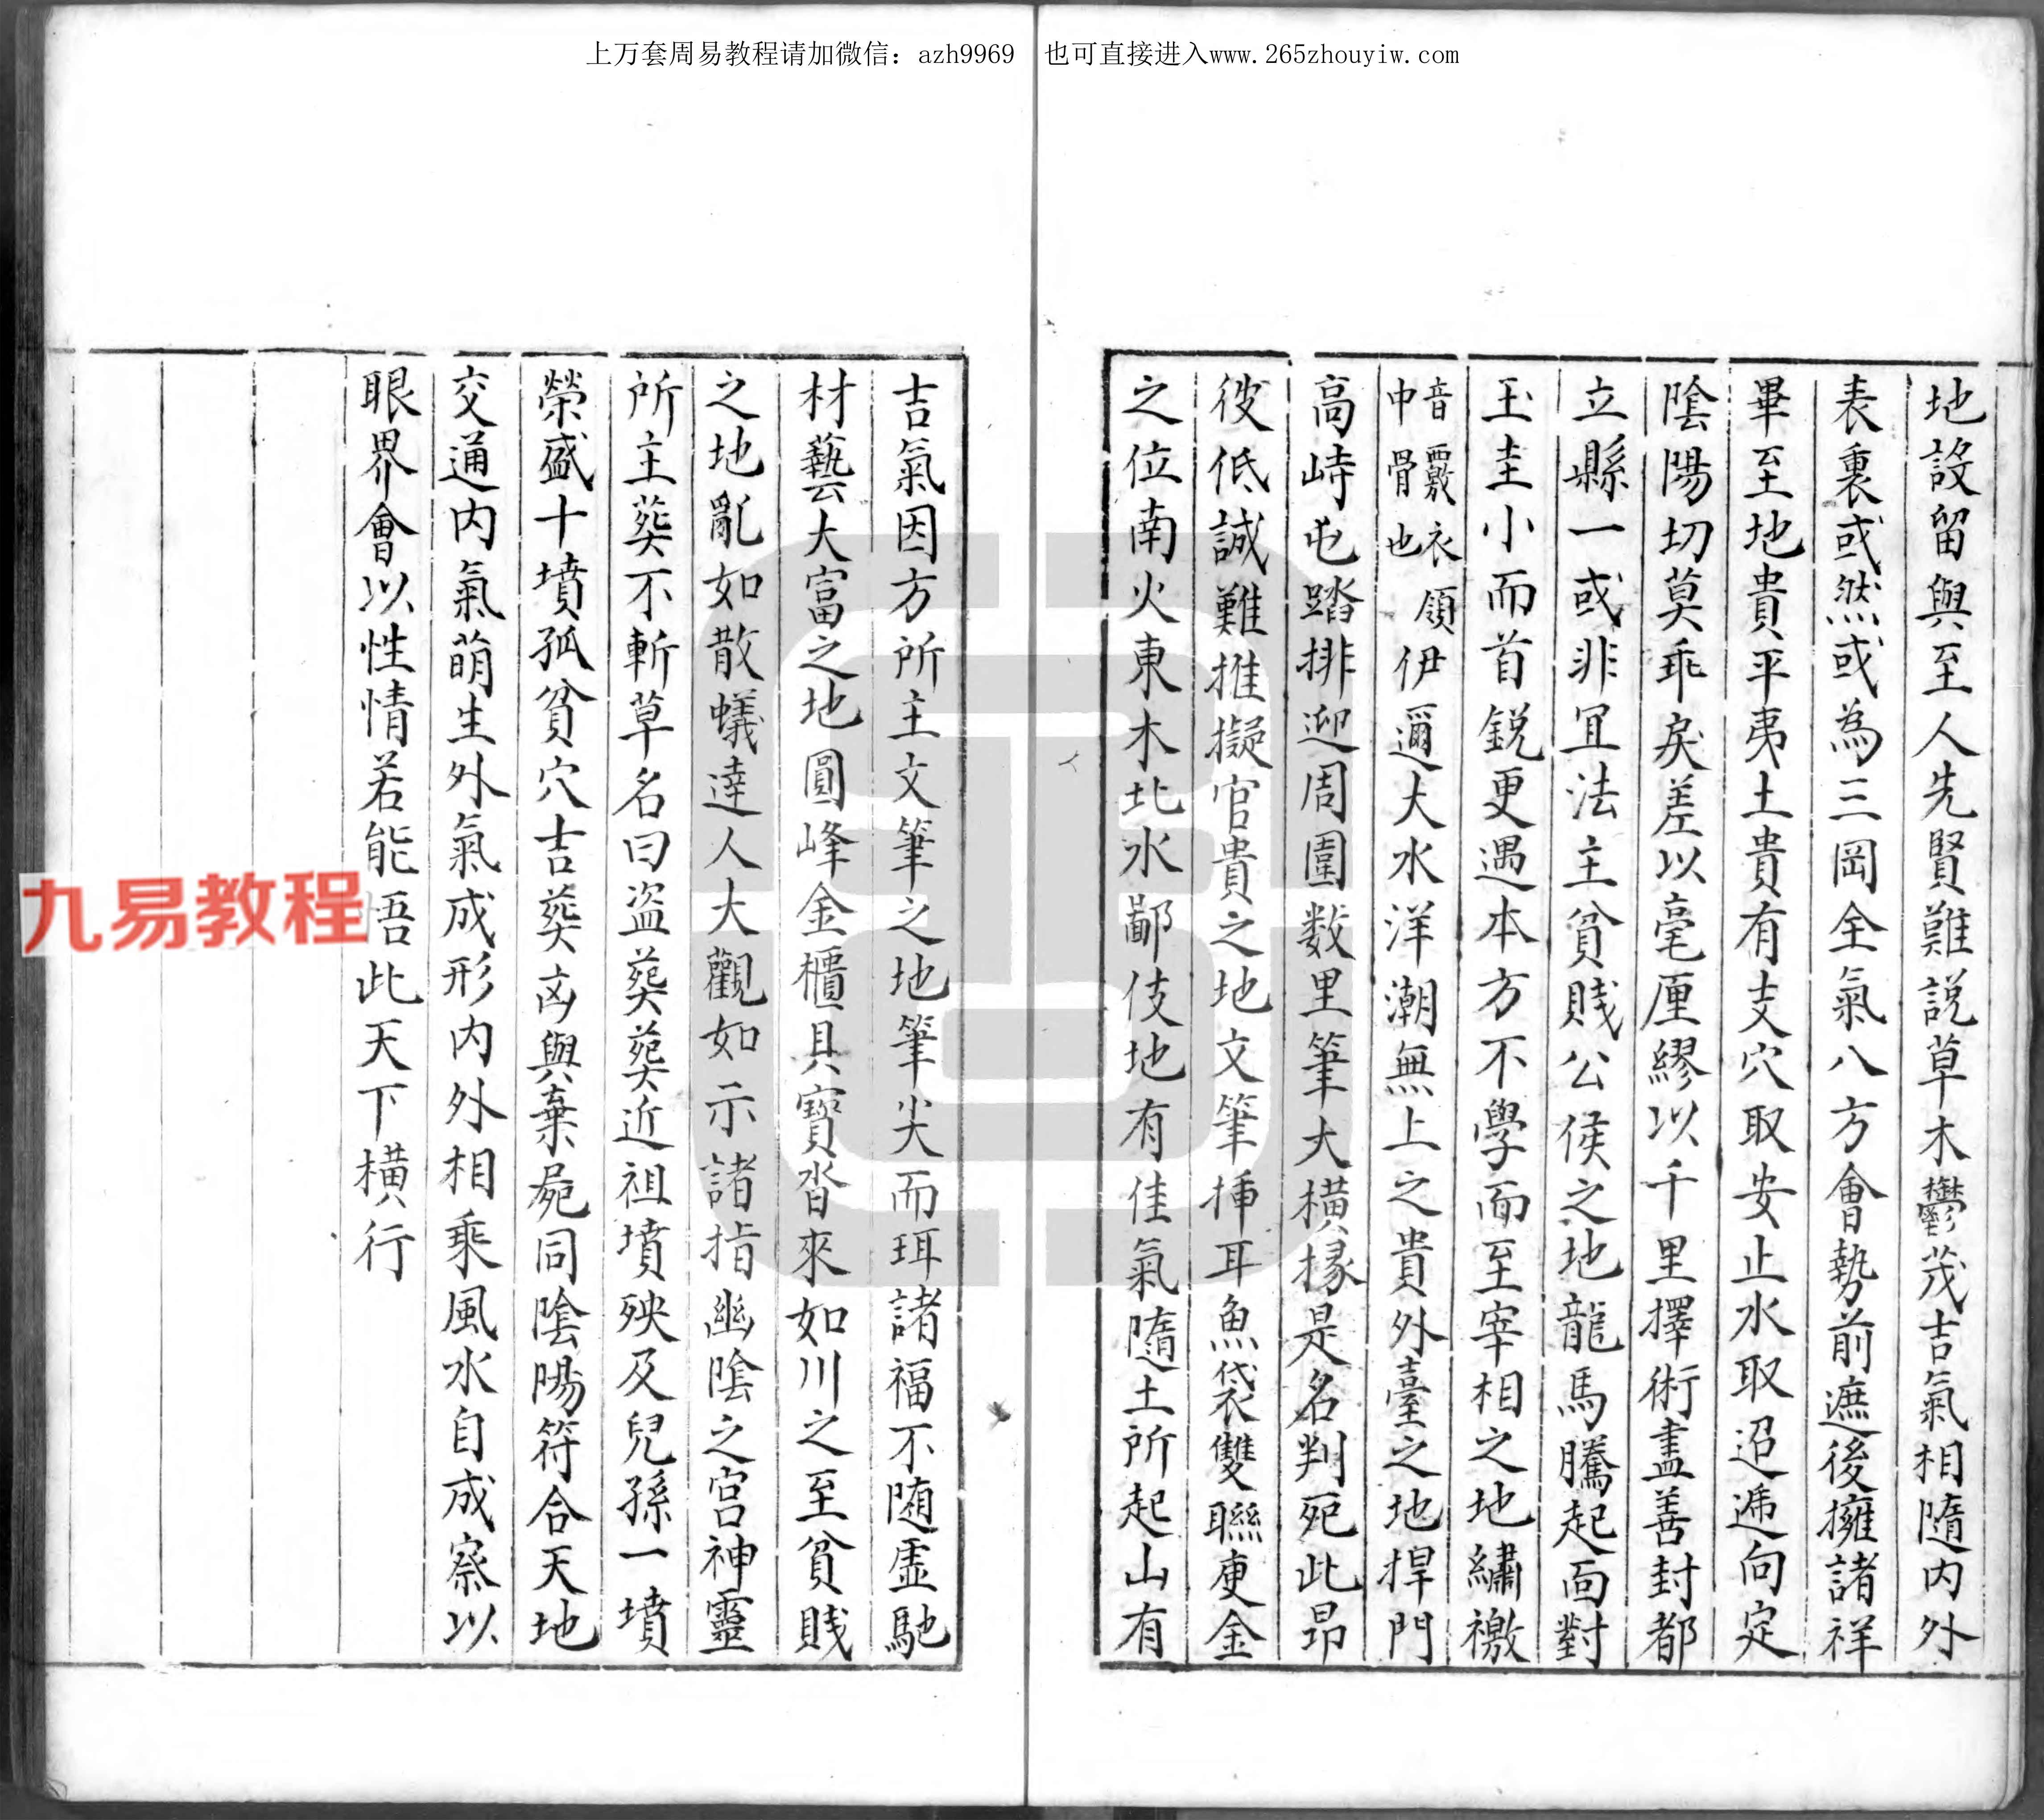 上万套周易教程请加微信：azh9969　也可直接进入www.265zhouyiw.com
地設留與至人先賢難説草木鬱茂吉氣相隨内外
表裏或然或為三岡全氣八方會勢前遮後擁諸祥
畢至地貴平夷土貴有支穴取安止水取迢遞向定
陰陽切莫乖戾差以毫厘繆以千里擇術盡善封都
立縣一或非冝法主貧賤公侯之地龍馬騰起靣對
玉圭小而首銳更遇本方不學而至宰相之地繡襒
音覈衣領
中骨也
伊邇大水洋潮無上之貴外臺之地捍門
高峙屯踏排迎周圍数里筆大橫掾是名判死此昂
彼低誠難推擬官貴之地文筆挿耳魚袋雙聯庚金
之位南火東木北水鄙伎地有佳氣隨土所起山有
吉氣因方所主文筆之地筆尖而珥諸福不随虛馳
材藝大富之地圓峰金櫃具寳沓來如川之至貧賎
之地亂如散蟻逹人大觀如示諸指幽陰之宮神靈
所主葬不斬草名曰盗葬葬近祖墳殃及兒孫一墳
榮盛十墳孤貧穴吉葬凶與棄屍同陰陽符合天地
交通内氣萌生外氣成形内外相乘風水自成察以
眼界會以性情若能悟此天下橫行
九易教程